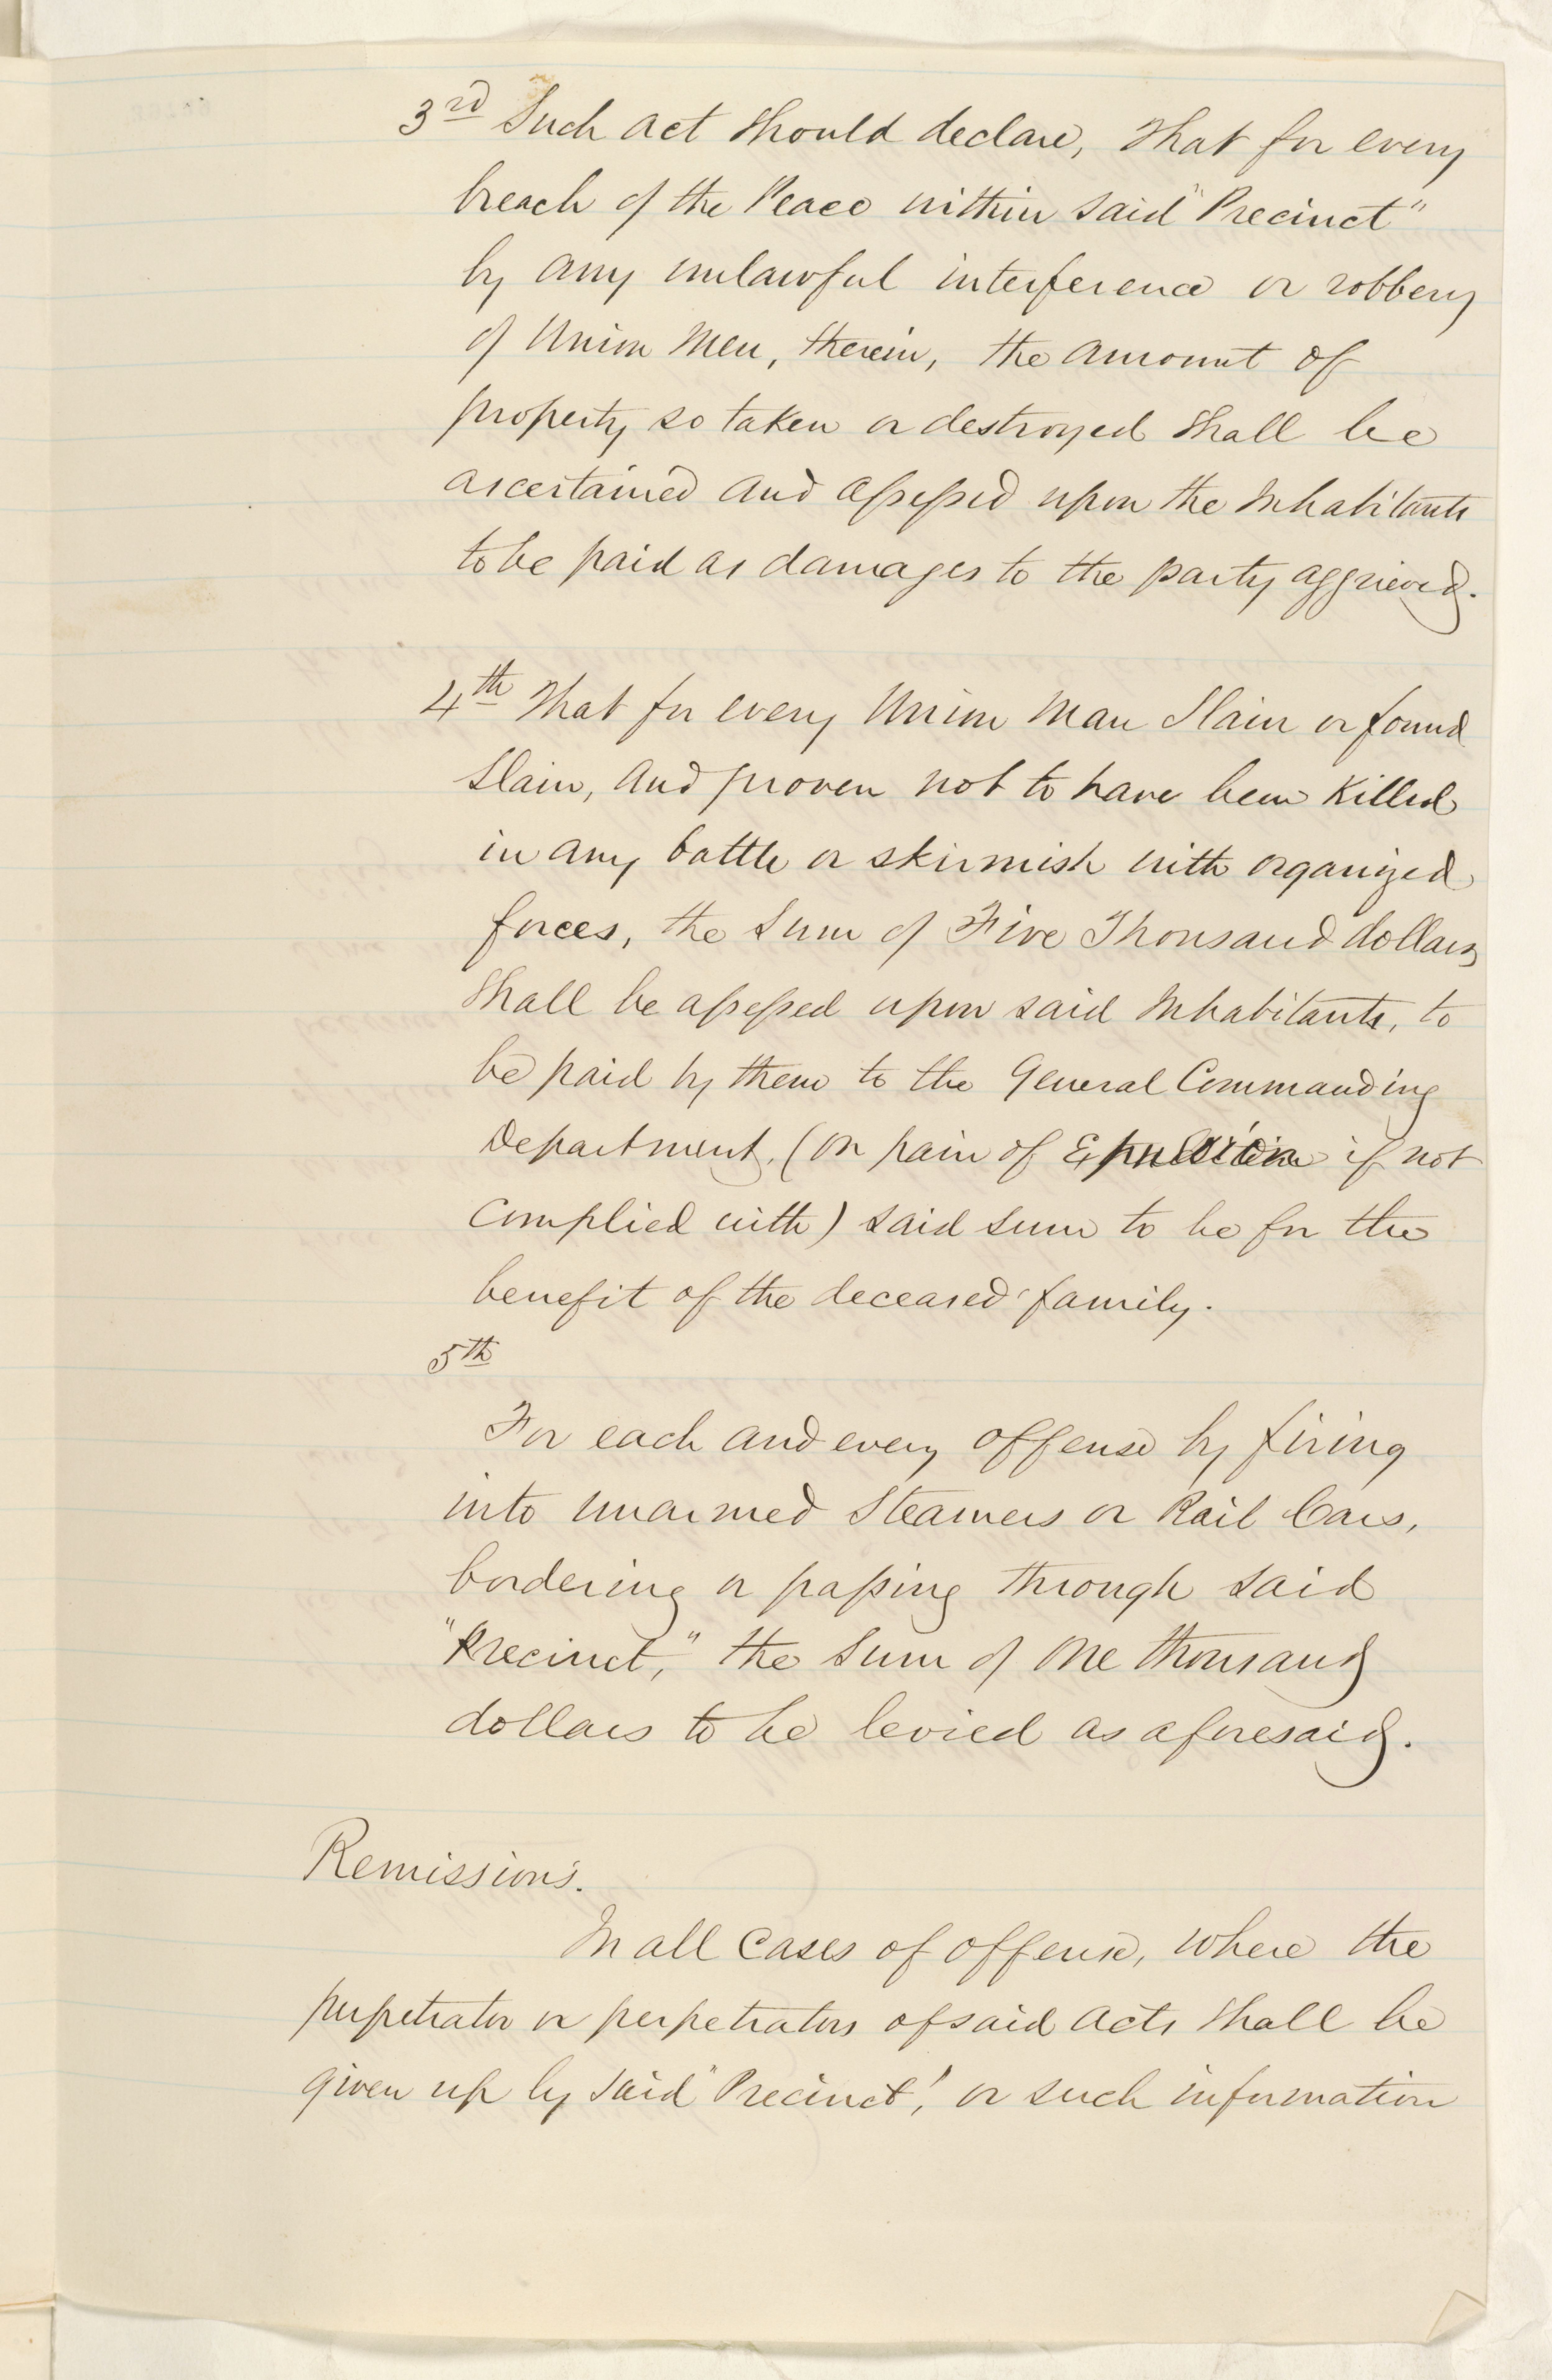 3rd Such act should declare, That for every
breach of the Peace within said "Precinct"
by any unlawful interference or robbery
of Union Men, therein, the amount of
property so taken or destroyed shall be
ascertained and assessed upon the Inhabitants
to be paid as damages to the party aggrieved.
4th That for every Union Man Slain or found
Slain, and proven not to have been Killed
in any battle or skirmish with organized
forces, the Sum of Five Thousand dollars
shall be assessed upon said Inhabitants, to
be paid by them to the General Commanding
Department. (on pain of if not
complied with) said sum to be for the
benefit of the deceased' family.
5th
For each and every offense by firing
into unarmed Steamers or Rail Cars,
bordering or passing through said
"Precinct," the Sum of One thousand
dollars to be levied as aforesaid.
Remissions.
In all cases of offense, where the
perpetrator or perpetrators of said acts shall be
given up by said "Precinct", or such information